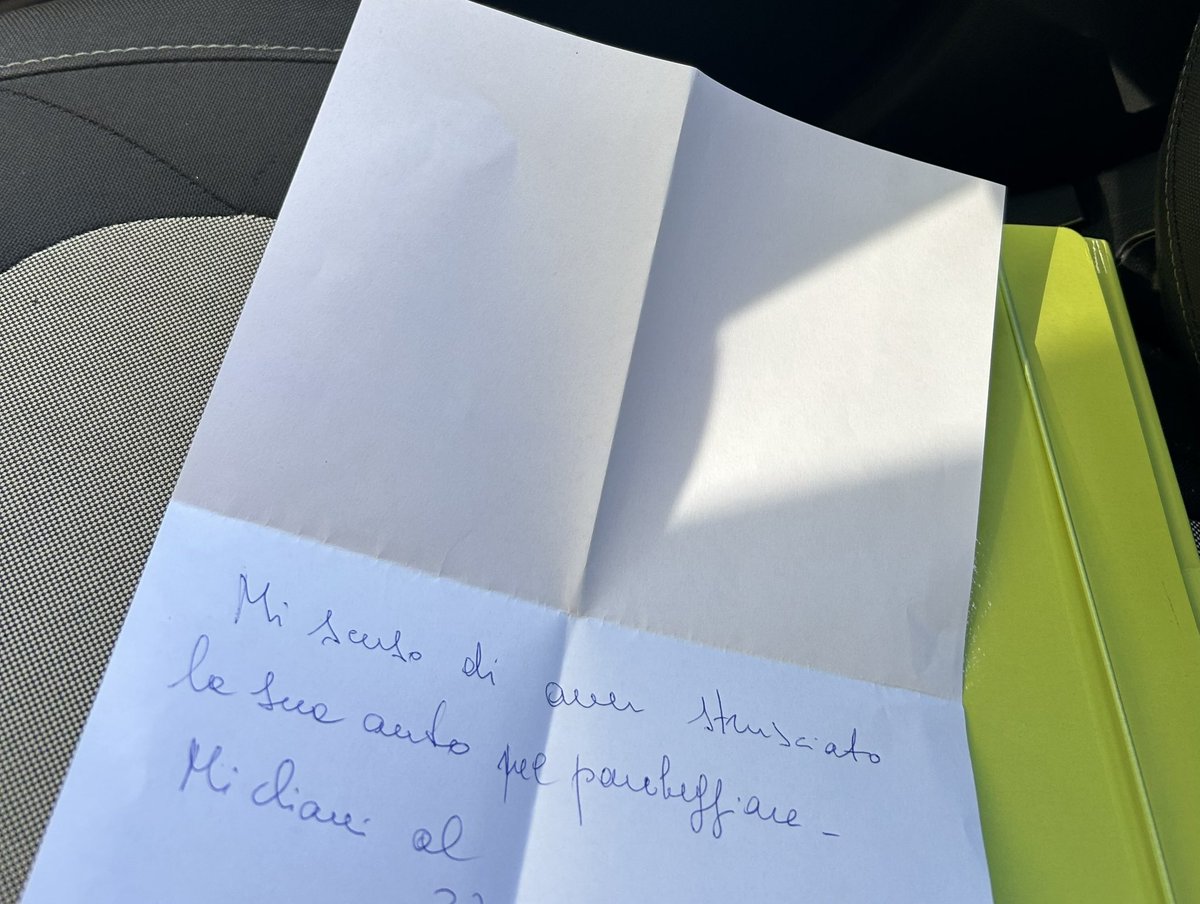 Mi scuso di aver strusciato
la sua auto nel parcheggiare -
Mi chiami al